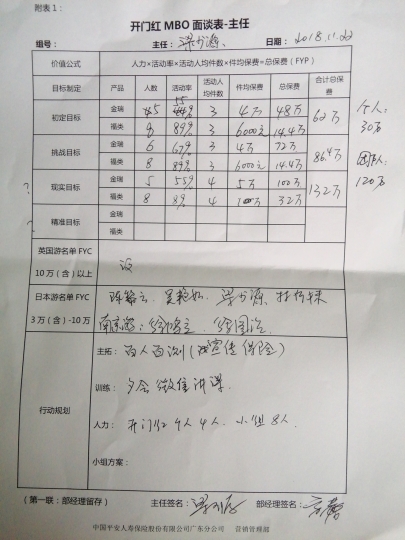 附表1：
开门红 MBO 面谈表-主任
组号： 主任：梁书源 日期：2018.11.22
价值公式 人力×活动率×活动人均件数×件均保费=总保费（FYP）
目标制定 产品 人数 活动率 活动人均件数 件均保费 总保费 合计总保费
初定目标 金瑞 5 55% 3 4万 48万 62万
福类 8 89% 3 6000元 14.4万
个人：
30万
挑战目标 金瑞 6 67% 3 4万 72万 86.4万
福类 8 89% 3 6000元 14.4万
团队：
120万
? 现实目标 金瑞 5 55% 4 5万 100万 132万
福类 8 89% 4 32万
? 精准目标 金瑞
福类
英国游名单 FYC
10 万（含）以上
没
日本游名单 FYC
3 万（含）-10万
梁书源
南京游：
行动规划
主拓：百人百测（宣传保险）
训练：夕会微信讲课
人力：开门红个人4人、小组8人
小组方案：
（第一联：部经理留存） 主任签名： 部经理签名：
中国平安人寿保险股份有限公司广东分公司 营销管理部